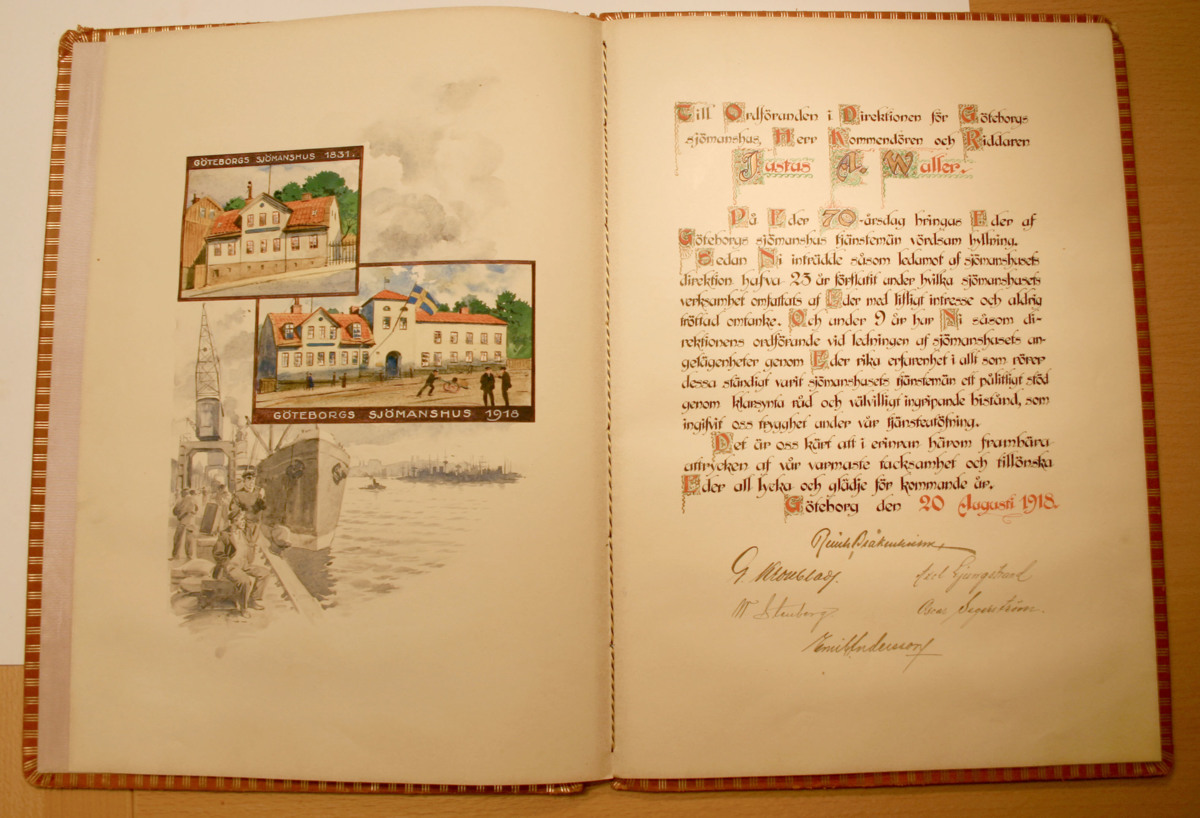 GÖTEBORGS SJÖMANSHUS 1831.
GÖTEBORGS SJÖMANSHUS 1918
Till Ordföranden i Direktionen för Göteborgs
sjömanshus, Herr Kommendören och Riddaren
Justus A. Waller.
På Eder 70-årsdag bringas Eder af
Göteborgs sjömanshus tjänstemän vördsam hyllning.
Sedan Ni inträdde såsom ledamot af sjömanshusets
direktion hafva 23 år förflutit under hvilka sjömanshusets
verksamhet omfattats af Eder med lifligt intresse och aldrig
tröttad omtanke. Och under 9 år har Ni såsom di-
rektionens ordförande vid ledningen af sjömanshusets an-
gelägenheter genom Eder rika erfarenhet i allt som rörer
dessa ständigt varit sjömanshusets tjänstemän ett pålitligt stöd
genom klarsynta råd och välvilligt ingripande bistånd, som
ingifvit oss trygghet under vår tjänsteutöfning.
Det är oss kärt att i erinran härom frambära
uttrycken af vår varmaste tacksamhet och tillönska
Eder all lycka och glädje för kommande år.
Göteborg den 20 Augusti 1918.
G. Kronblad.
Axel Ljungstrand
W Stenberg
Oscar Segerström.
Emil Andersson